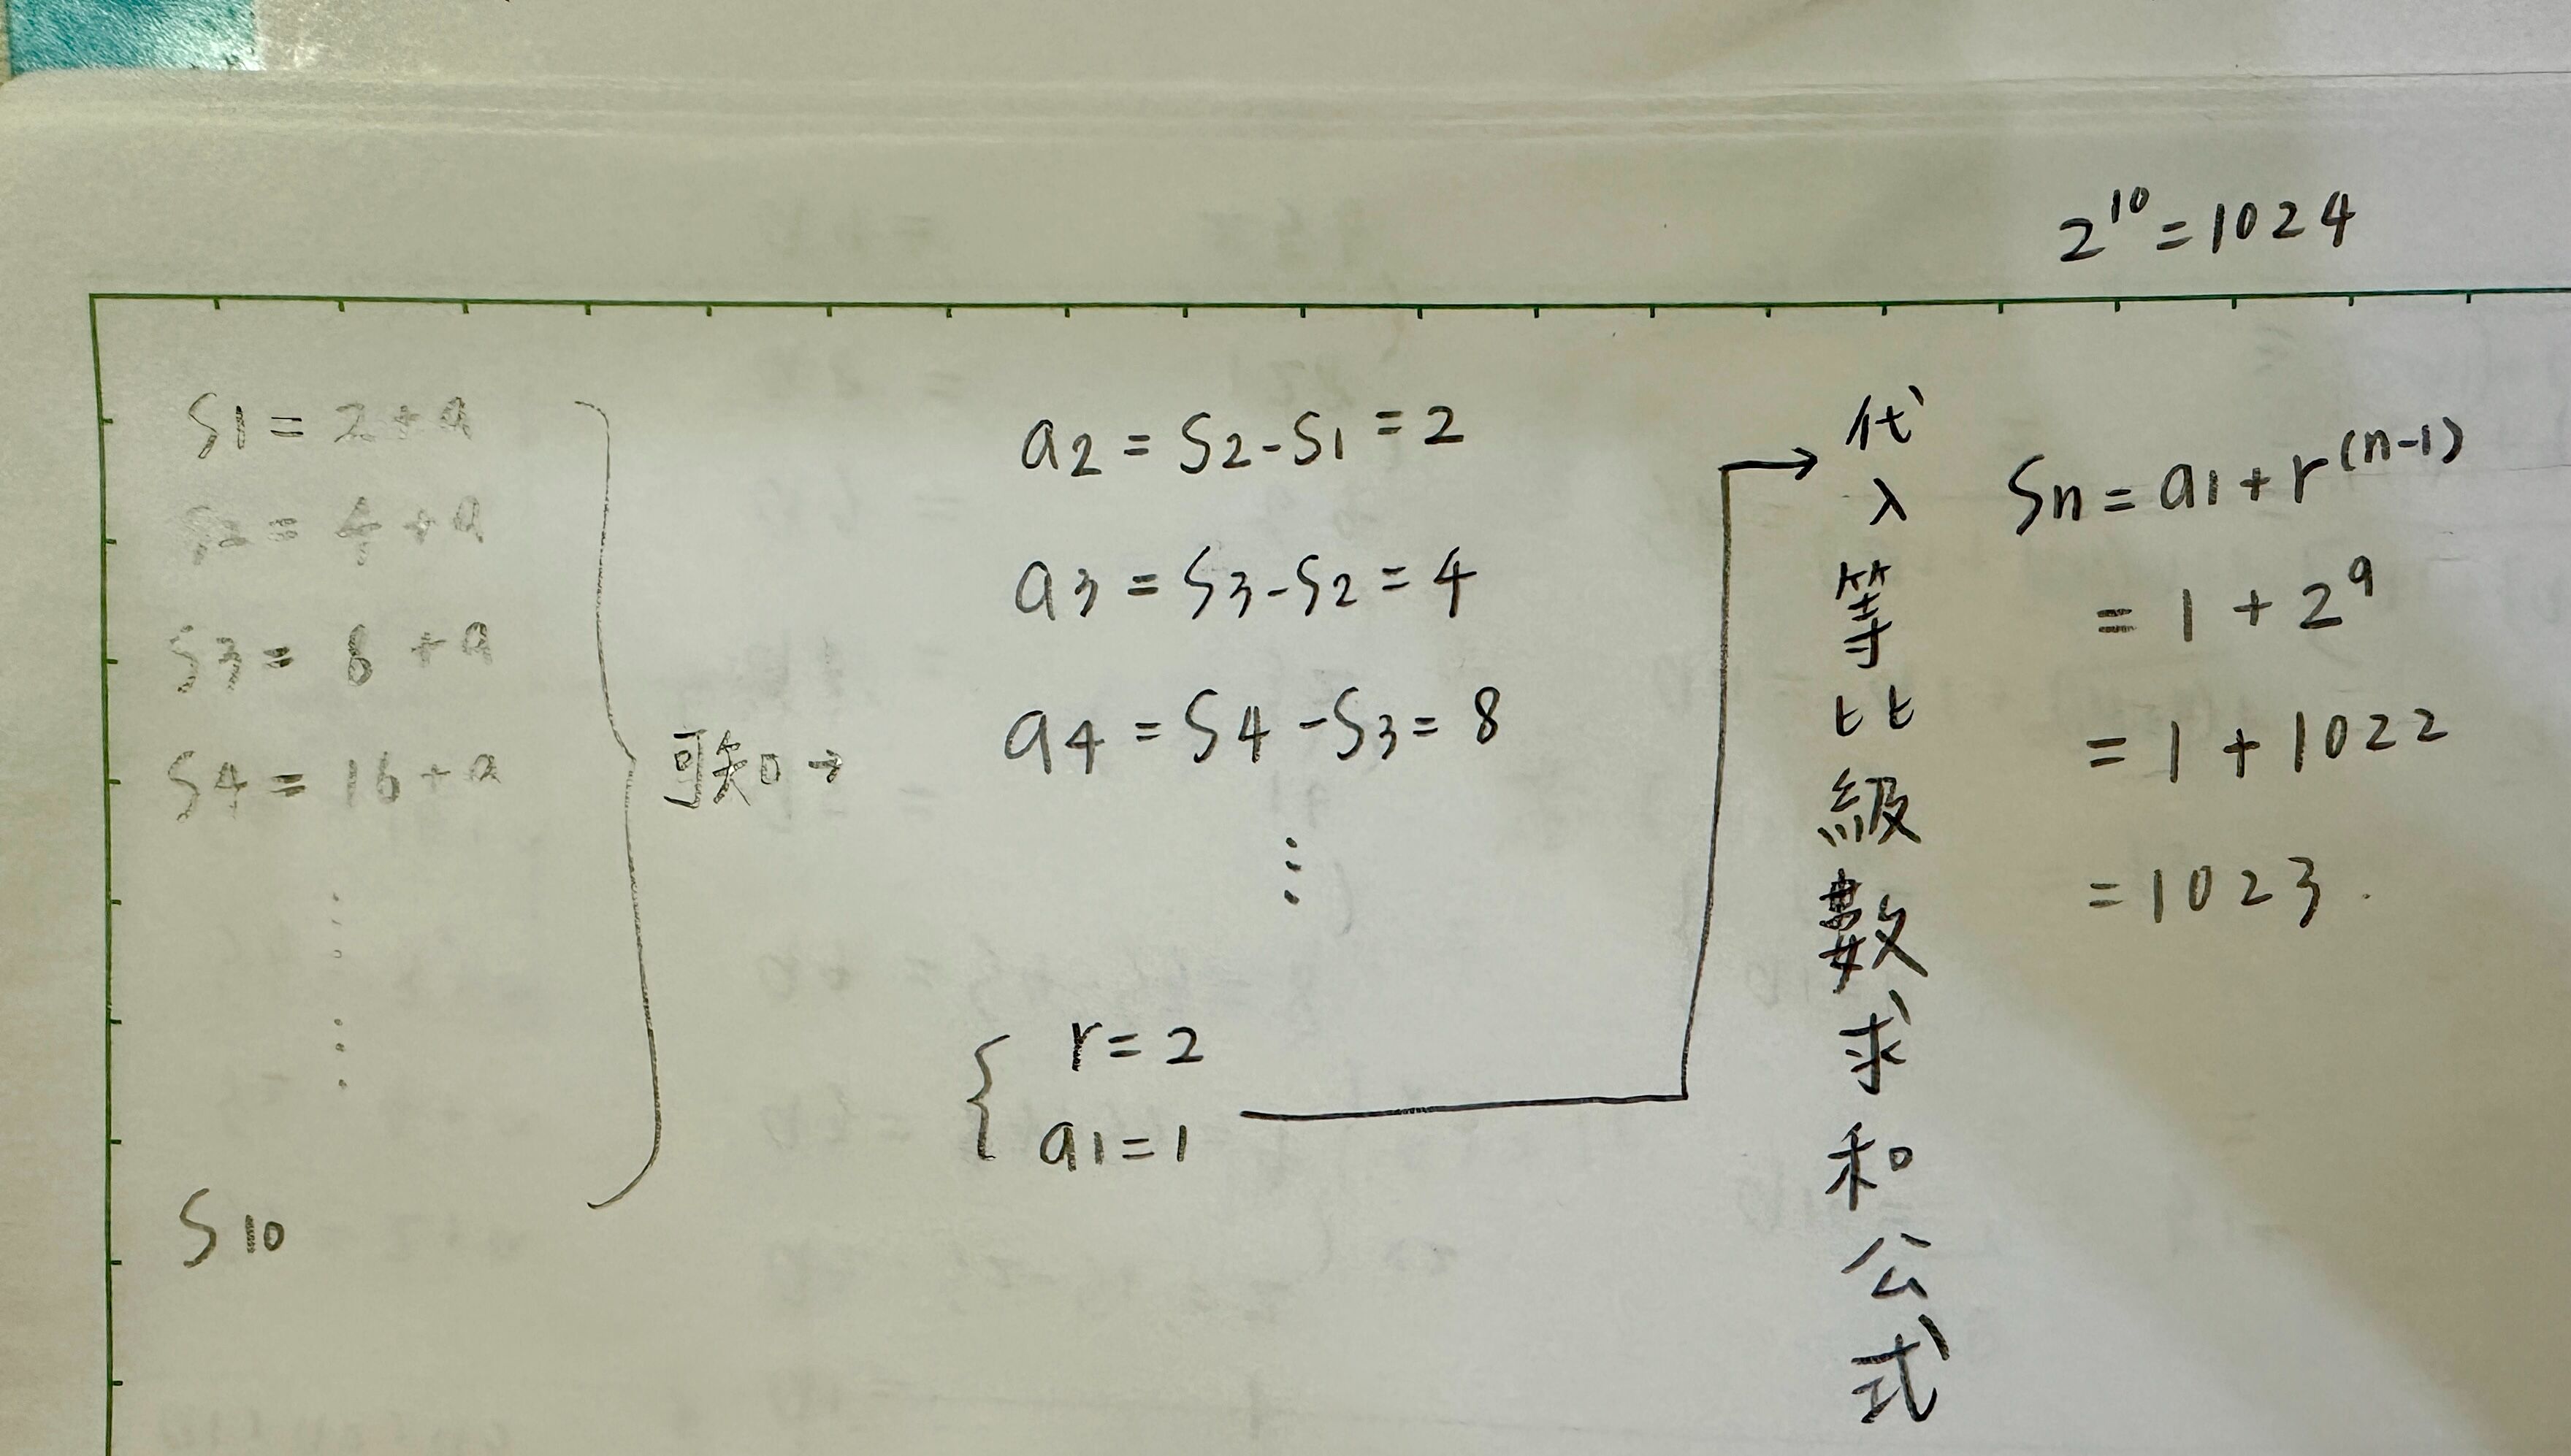 2^10 = 1024
S1 = 2 + a
S2 = 4 + a
S3 = 8 + a
S4 = 16 + a
⋮
S10
可知→
a2 = S2 - S1 = 2
a3 = S3 - S2 = 4
a4 = S4 - S3 = 8
⋮
{ r = 2
a1 = 1
代入等比級數求和公式
Sn = a1 + r^(n-1)
= 1 + 2^9
= 1 + 1022
= 1023.